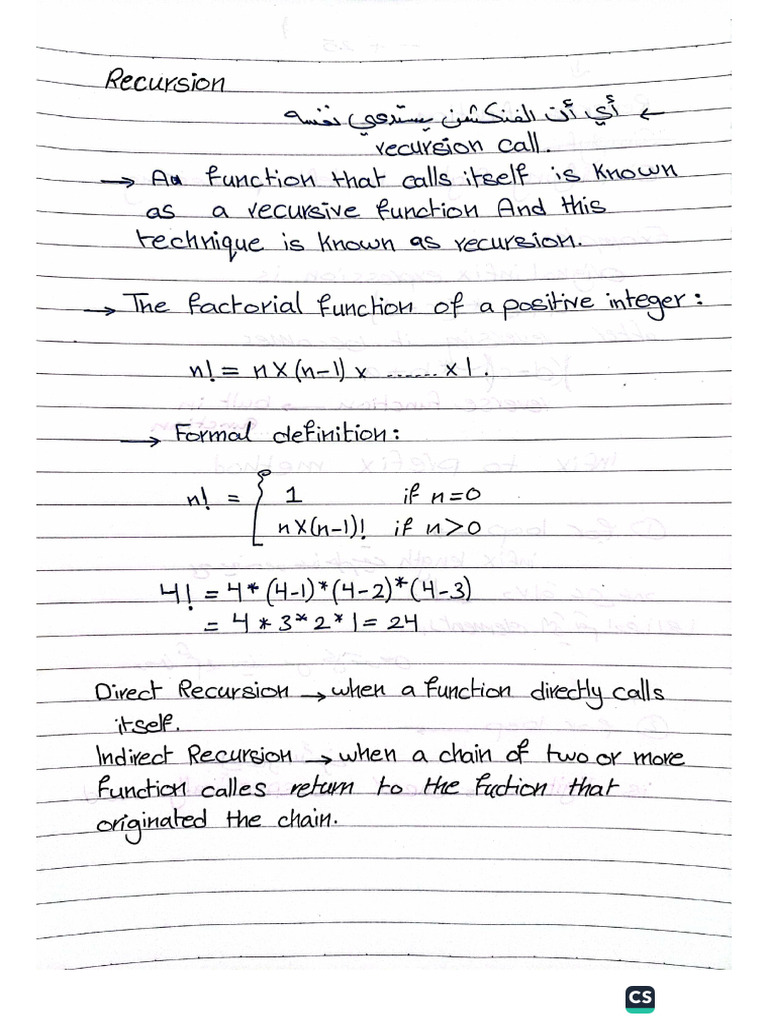 Recursion
← أي أن الفنكشن يستدعي نفسه
recursion call.
→ Aa function that calls itself is known
as a recursive function And this
technique is known as recursion.
→ The factorial function of a positive integer:
n! = n X (n-1) x ....... x 1.
→ Formal definition:
n! = { 1 if n=0
n X (n-1)! if n>0
4! = 4 * (4-1) * (4-2) * (4-3)
= 4 * 3 * 2 * 1 = 24
Direct Recursion → when a function directly calls
itself.
Indirect Recursion → when a chain of two or more
function calles return to the fuction that
originated the chain.
CS